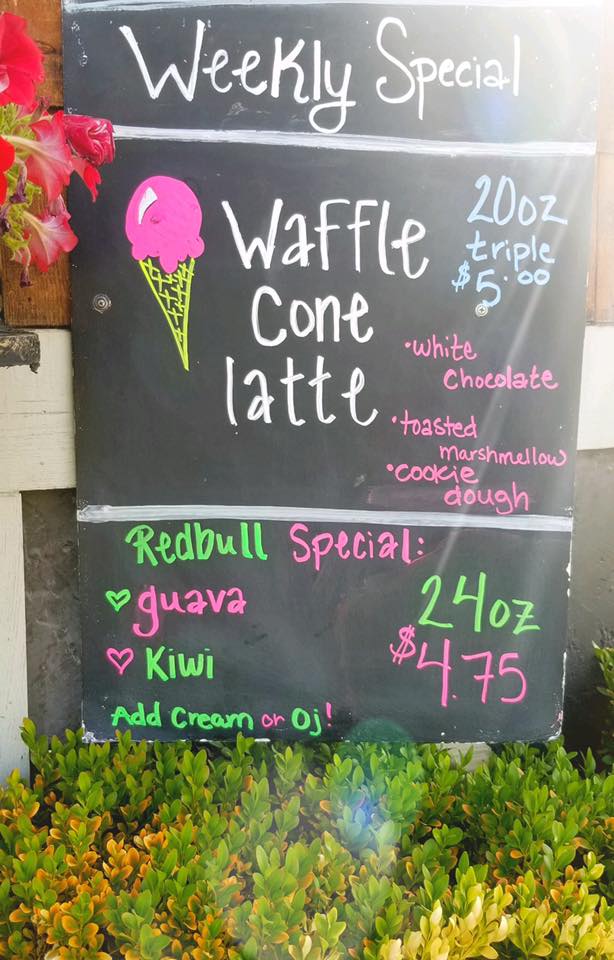 Weekly Special
Waffle
Cone
latte
20oz
triple
$5.00
•white
Chocolate
•toasted
marshmellow
•cookie
dough
Redbull Special:
guava
Kiwi
24oz
$4.75
Add Cream or Oj!